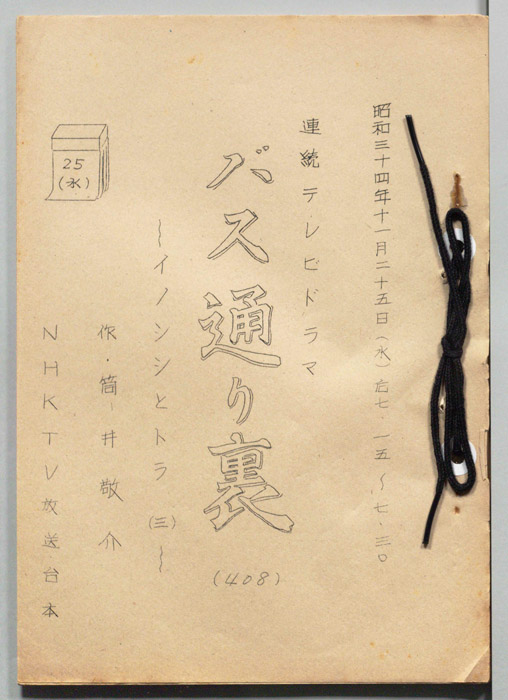 昭和三十四年十一月二十五日（水）后七・一五〜七・三〇
連続テレビドラマ
バス通り裏
(408)
〜イノシシとトラ（三）〜
作・筒井敬介
NHKTV放送台本
25
(水)